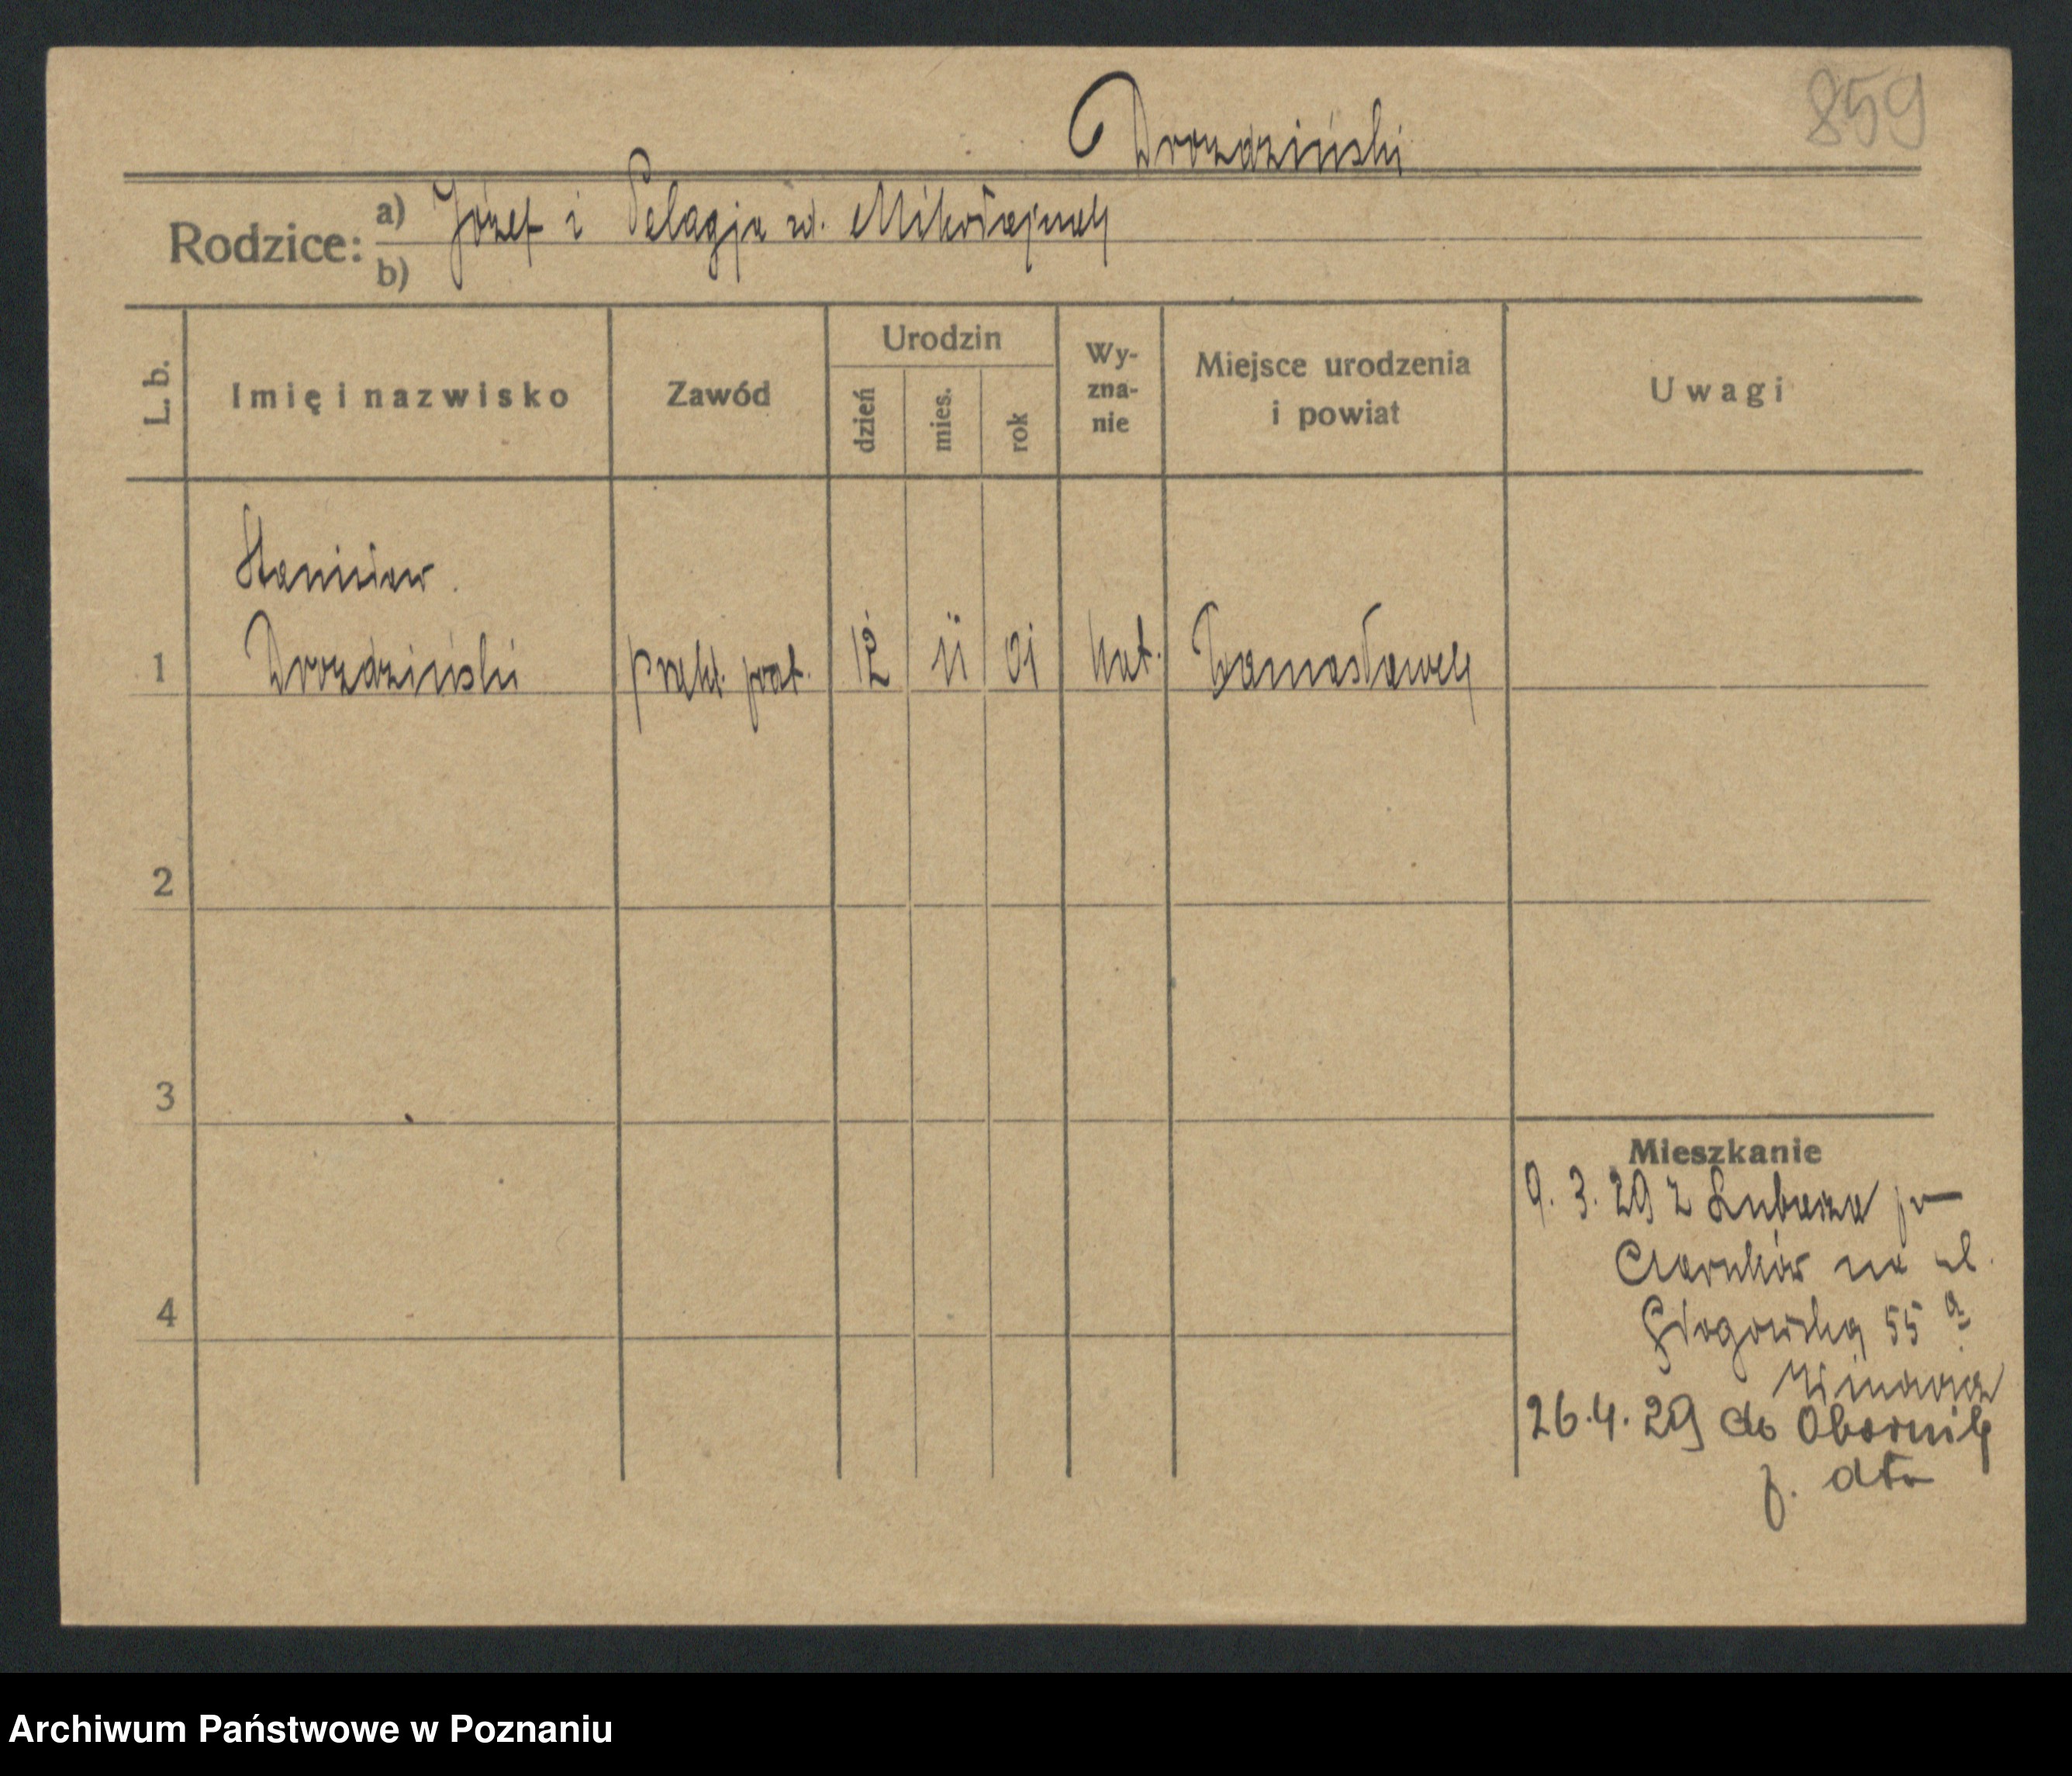 859
Drozdziński
Rodzice: a) Józef i Pelagja zd. Mikołajczak
b)
L. b. Imię i nazwisko Zawód Urodzin dzień mies. rok Wyznanie Miejsce urodzenia i powiat Uwagi
Stanisław
1 Drozdziński prakt. 12 11 01 kat.
2
3
Mieszkanie
9. 3. 29 z Lubasza
Czarnków na ul.
4 Głogowską 55 a
26.4.29 do Obornik
Archiwum Państwowe w Poznaniu